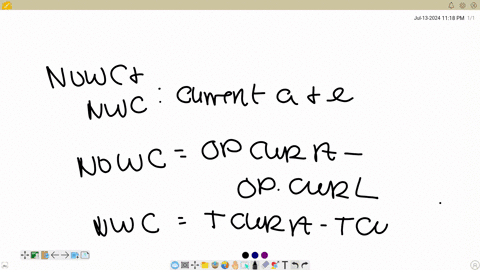 Jul-13-2024 11:18 PM 1/1
NOWC+
NWC : Current a + l
NOWC = OP CUR A -
OP. CUR L
NWC = T CUR A - T CU